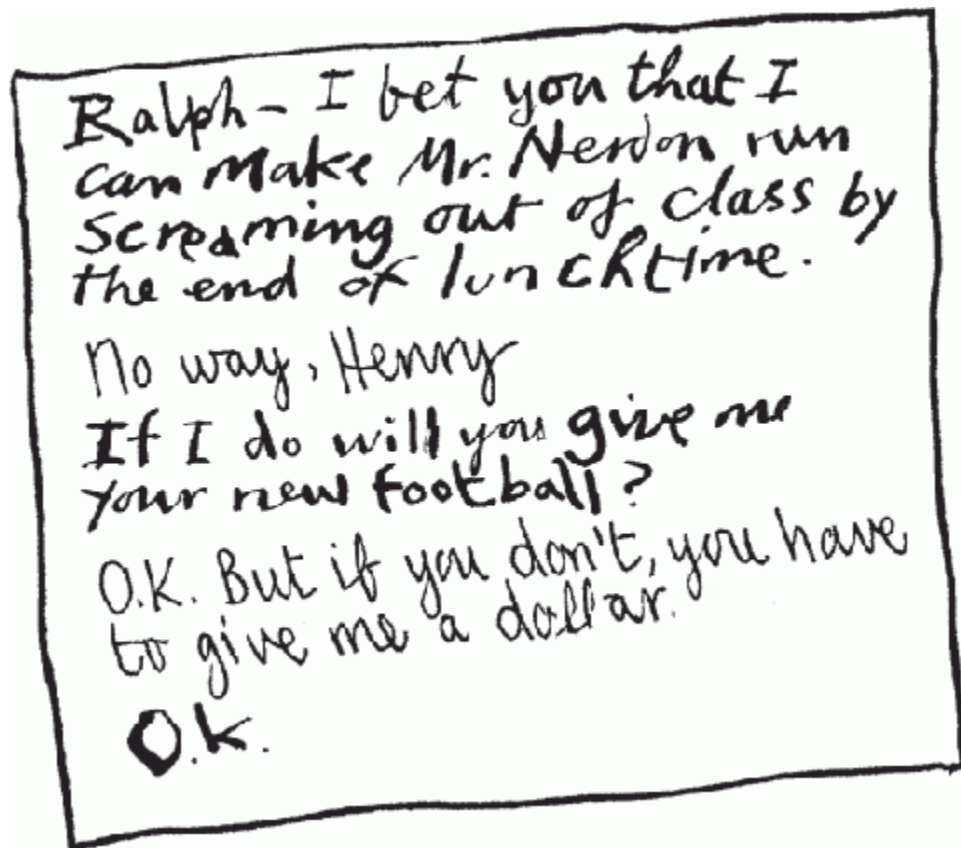 Ralph - I bet you that I
can make Mr. Nerdon run
screaming out of class by
the end of lunchtime.
No way, Henry
If I do will you give me
your new football?
O.K. But if you don't, you have
to give me a dollar.
O.K.